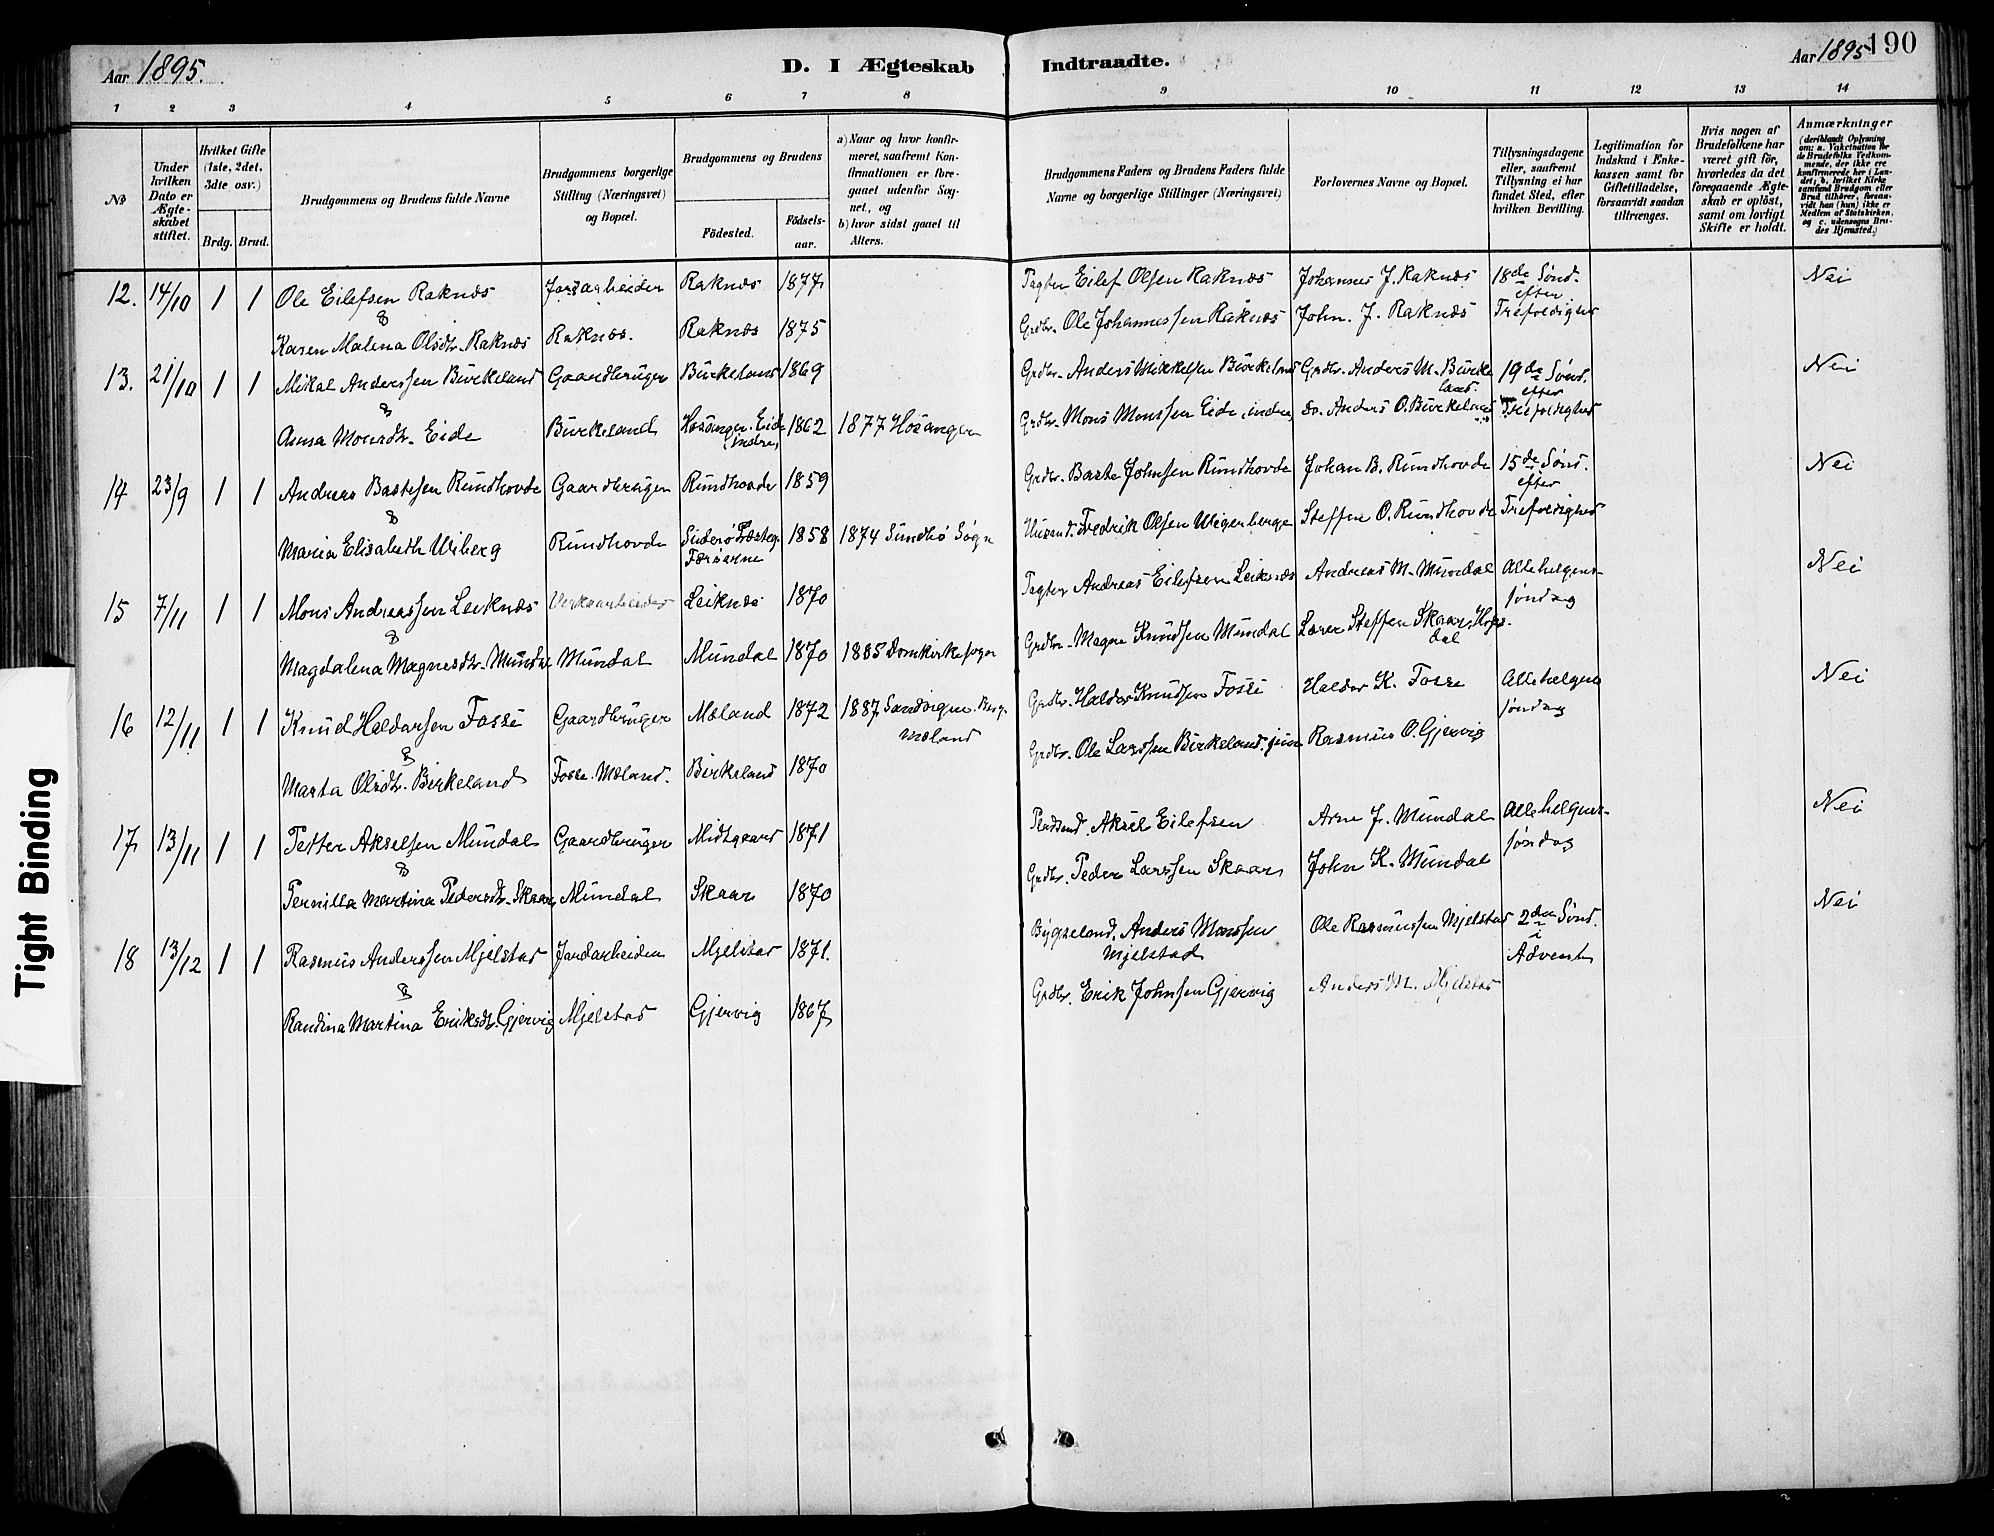 Aar 1895. D. I Ægteskab Indtraadte. Aar 1895 190
1 2 3 4 5 6 7 8 9 10 11 12 13 14
№
Under hvilken Dato er Ægteskabet stiftet.
Hvilket Gifte (1ste, 2det, 3die osv.)
Brdg. Brud.
Brudgommens og Brudens fulde Navne
Brudgommens borgerlige Stilling (Næringsvei) og Bopæl.
Brudgommens og Brudens
Fødested. Fødsels-aar.
a) Naar og hvor konfirmeret, saafremt Konfirmationen er foregaaet udenfor Sognet, og
b) hvor sidst gaaet til Alters.
Brudgommens Faders og Brudens Faders fulde Navne og borgerlige Stillinger (Næringsvei)
Forlovernes Navne og Bopæl.
Tillysningsdagene eller, saafremt Tillysning ei har fundet Sted, efter hvilken Bevilling.
Legitimation for Indskud i Enkekassen samt for Giftetilladelse, forsaavidt saadan tiltrænges.
Hvis nogen af Brudefolkene har været gift før, hvorledes da det foregaaende Ægteskab er opløst, samt om lovligt Skifte er holdt.
Anmærkninger (deriblandt Oplysning om: a. Vakcination for de Brudefolks Vedkommende, der ikke ere konfirmerede her i Landet, b. hvilket Kirkesamfund Brudgom eller Brud tilhører, forsaavidt han (hun) ikke er Medlem af Statskirken, og c. udensogns Brudes Hjemsted.)
12. 14/10 1 1 Ole Eilefsen Raknæs Jordarbeider Raknæs 1877 Eilef Olsen Raknæs Johannes J. Raknæs 18de Sønd. efter Nei
&
Karen Malena Olsdtr. Raknæs Raknæs. Raknæs 1875 Grdbr. Ole Johannessen Raknæs John. J. Raknæs Trefoldighed
13. 21/10 1 1 Mikal Anderssen Birkeland Gaardbruger Birkeland 1869 Grdbr. Anders Mikkelsen Birkeland Grdbr. Anders M. Birkeland. 19de Sønd. efter Nei
&
Anna Monsdtr. Eide Birkeland Hosanger. Eide indre, 1862 1877 Hosanger Grdbr. Mons Monssen Eide, indre, do. Anders O. Birkeland Trefoldighed
14 23/9 1 1 Andreas Bastesen Rundhovde Gaardbruger Rundhovde 1859 Grdbr. Baste Johnsen Rundhovde Johan B. Rundhovde 15de Sønd. efter Nei
&
Maria Elisabeth Wiberg Rundhovde Suderø Præsteg. Færøerne 1858 1874 Sundbø Sogn Fredrik Olsen Wigerberge Steffen O. Rundhovde Trefoldighed
15 7/11 1 1 Mons Andreassen Leiknæs Verksarbeider Leiknæs 1870 Andreas Eilefsen Leiknæs Andreas M. Mundal Allehelgens- Nei
&
søndag
Magdalena Magnesdtr. Mundal Mundal Mundal 1870 1885 Domkirkesogn Grdbr. Magne Knudsen Mundal Lærer Steffen Skaar, Hopsdal
16 12/11 1 1 Knud Haldorsen Fosse Gaardbruger Mæland 1872 1887 Sandvigen. Berg. Mæland Grdbr. Haldor Knudsen Fosse Haldor K. Fosse Allehelgens søndag Nei
&
Marta Olsdtr. Birkeland Fosse. Mæland. Birkeland 1870 Grdbr. Ole Larssen Birkeland, Rasmus O. Gjervig
17 13/11 1 1 Petter Akselsen Mundal Gaardbruger Midtgaard 1871 Aksel Eilefsen Arne J. Mundal Allehelgens- Nei
&
søndag
Pernilla Martina Pedersdtr. Skaar, Mundal Skaar 1870 Grdbr. Peder Larssen Skaar John K. Mundal
18 13/12 1 1 Rasmus Anderssen Mjelstad Jordarbeider Mjelstad 1871. Anders Monssen Mjelstad Ole Rasmussen Mjelstad 2den Sønd. i Advent Nei
&
Randina Martina Eriksdtr. Gjervig Mjelstad Gjervig 1867 Grdbr. Erik Johnsen Gjervig Anders M. Mjelstad
Tight Binding